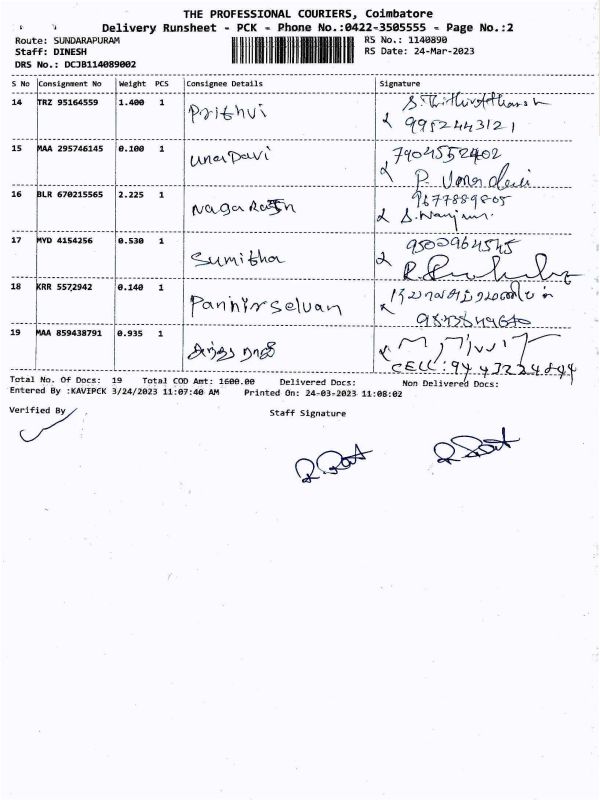 THE PROFESSIONAL COURIERS, Coimbatore
Delivery Runsheet - PCK - Phone No.:0422-3505555 - Page No.:2
Route: SUNDARAPURAM RS No.: 1140890
Staff: DINESH RS Date: 24-Mar-2023
DRS No.: DCJB114089002
S No Consignment No Weight PCS Consignee Details Signature
14 TRZ 95164559 1.400 1 Prithvi
9952443121
15 MAA 295746145 0.100 1 Uma Davi 7904552402
P. Uma devi
16 BLR 670215565 2.225 1 Nagaraj̶n̶ 9677889805
17 MYD 4154256 0.530 1 Sumitha 9500964545
18 KRR 5572942 0.140 1 Pannirselvan
19 MAA 859438791 0.935 1
CELL: 9443224844
Total No. Of Docs: 19 Total COD Amt: 1600.00 Delivered Docs: Non Delivered Docs:
Entered By :KAVIPCK 3/24/2023 11:07:40 AM Printed On: 24-03-2023 11:08:02
Verified By Staff Signature